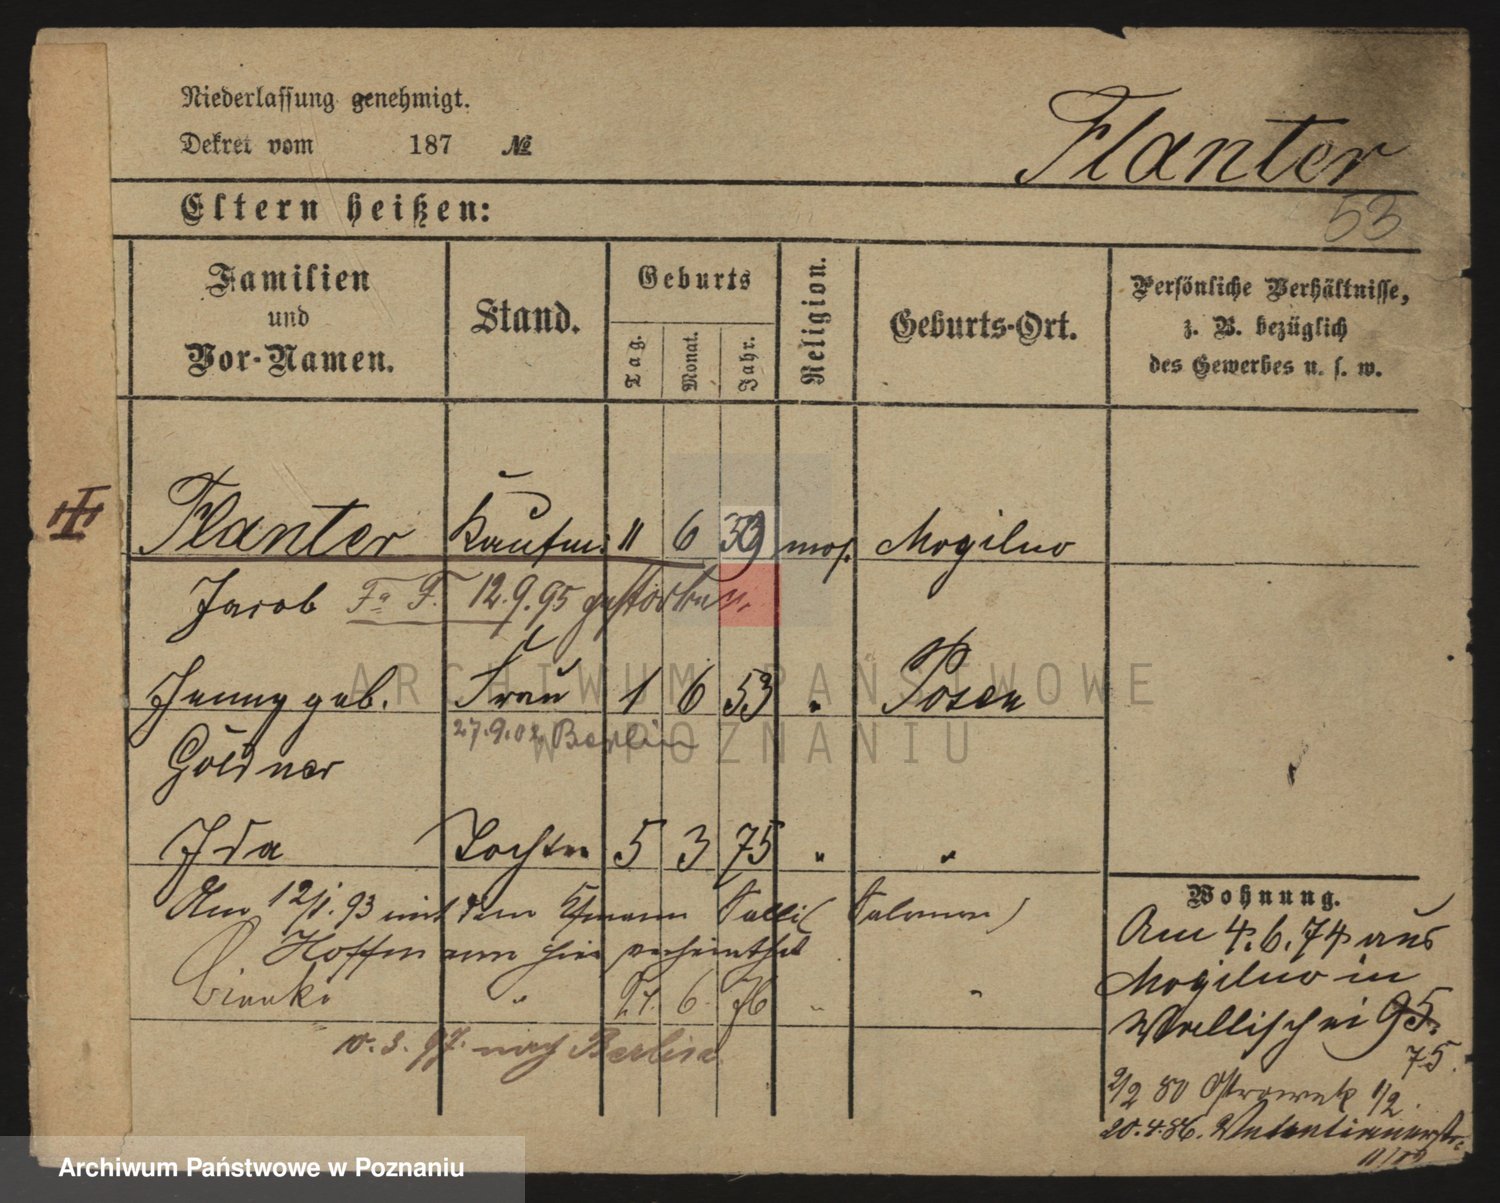 Niederlassung genehmigt.
Dekret vom 187 №
Flanter
53
Eltern heißen:
Familien und Vor-Namen.
Stand.
Geburts
Tag.
Monat.
Jahr.
Religion.
Geburts-Ort.
Persönliche Verhältnisse,
z. B. bezüglich
des Gewerbes u. s. w.
III
Flanter Kaufm: 11 6 39 mos. Mogilno
Jacob Fa F. 12.9.95 gestorben.
Jenny geb. Frau 1 6 53 " Posen
27.9.02 Berlin
Goldner
Ida Tochter 5 3 75 " "
Am 12/1. 93 mit dem Kfmann Salli (Salomon)
Hoffmann hier verheirathet
Bianka " 21. 6. 76 " "
10. 3. 97. nach Berlin
Wohnung.
Am 4. 6. 74 aus
Mogilno in
95.
75.
2/2 80 Ostrowek 1/2.
20.4.86.
ARCHIWUM PAŃSTWOWE
W POZNANIU
Archiwum Państwowe w Poznaniu